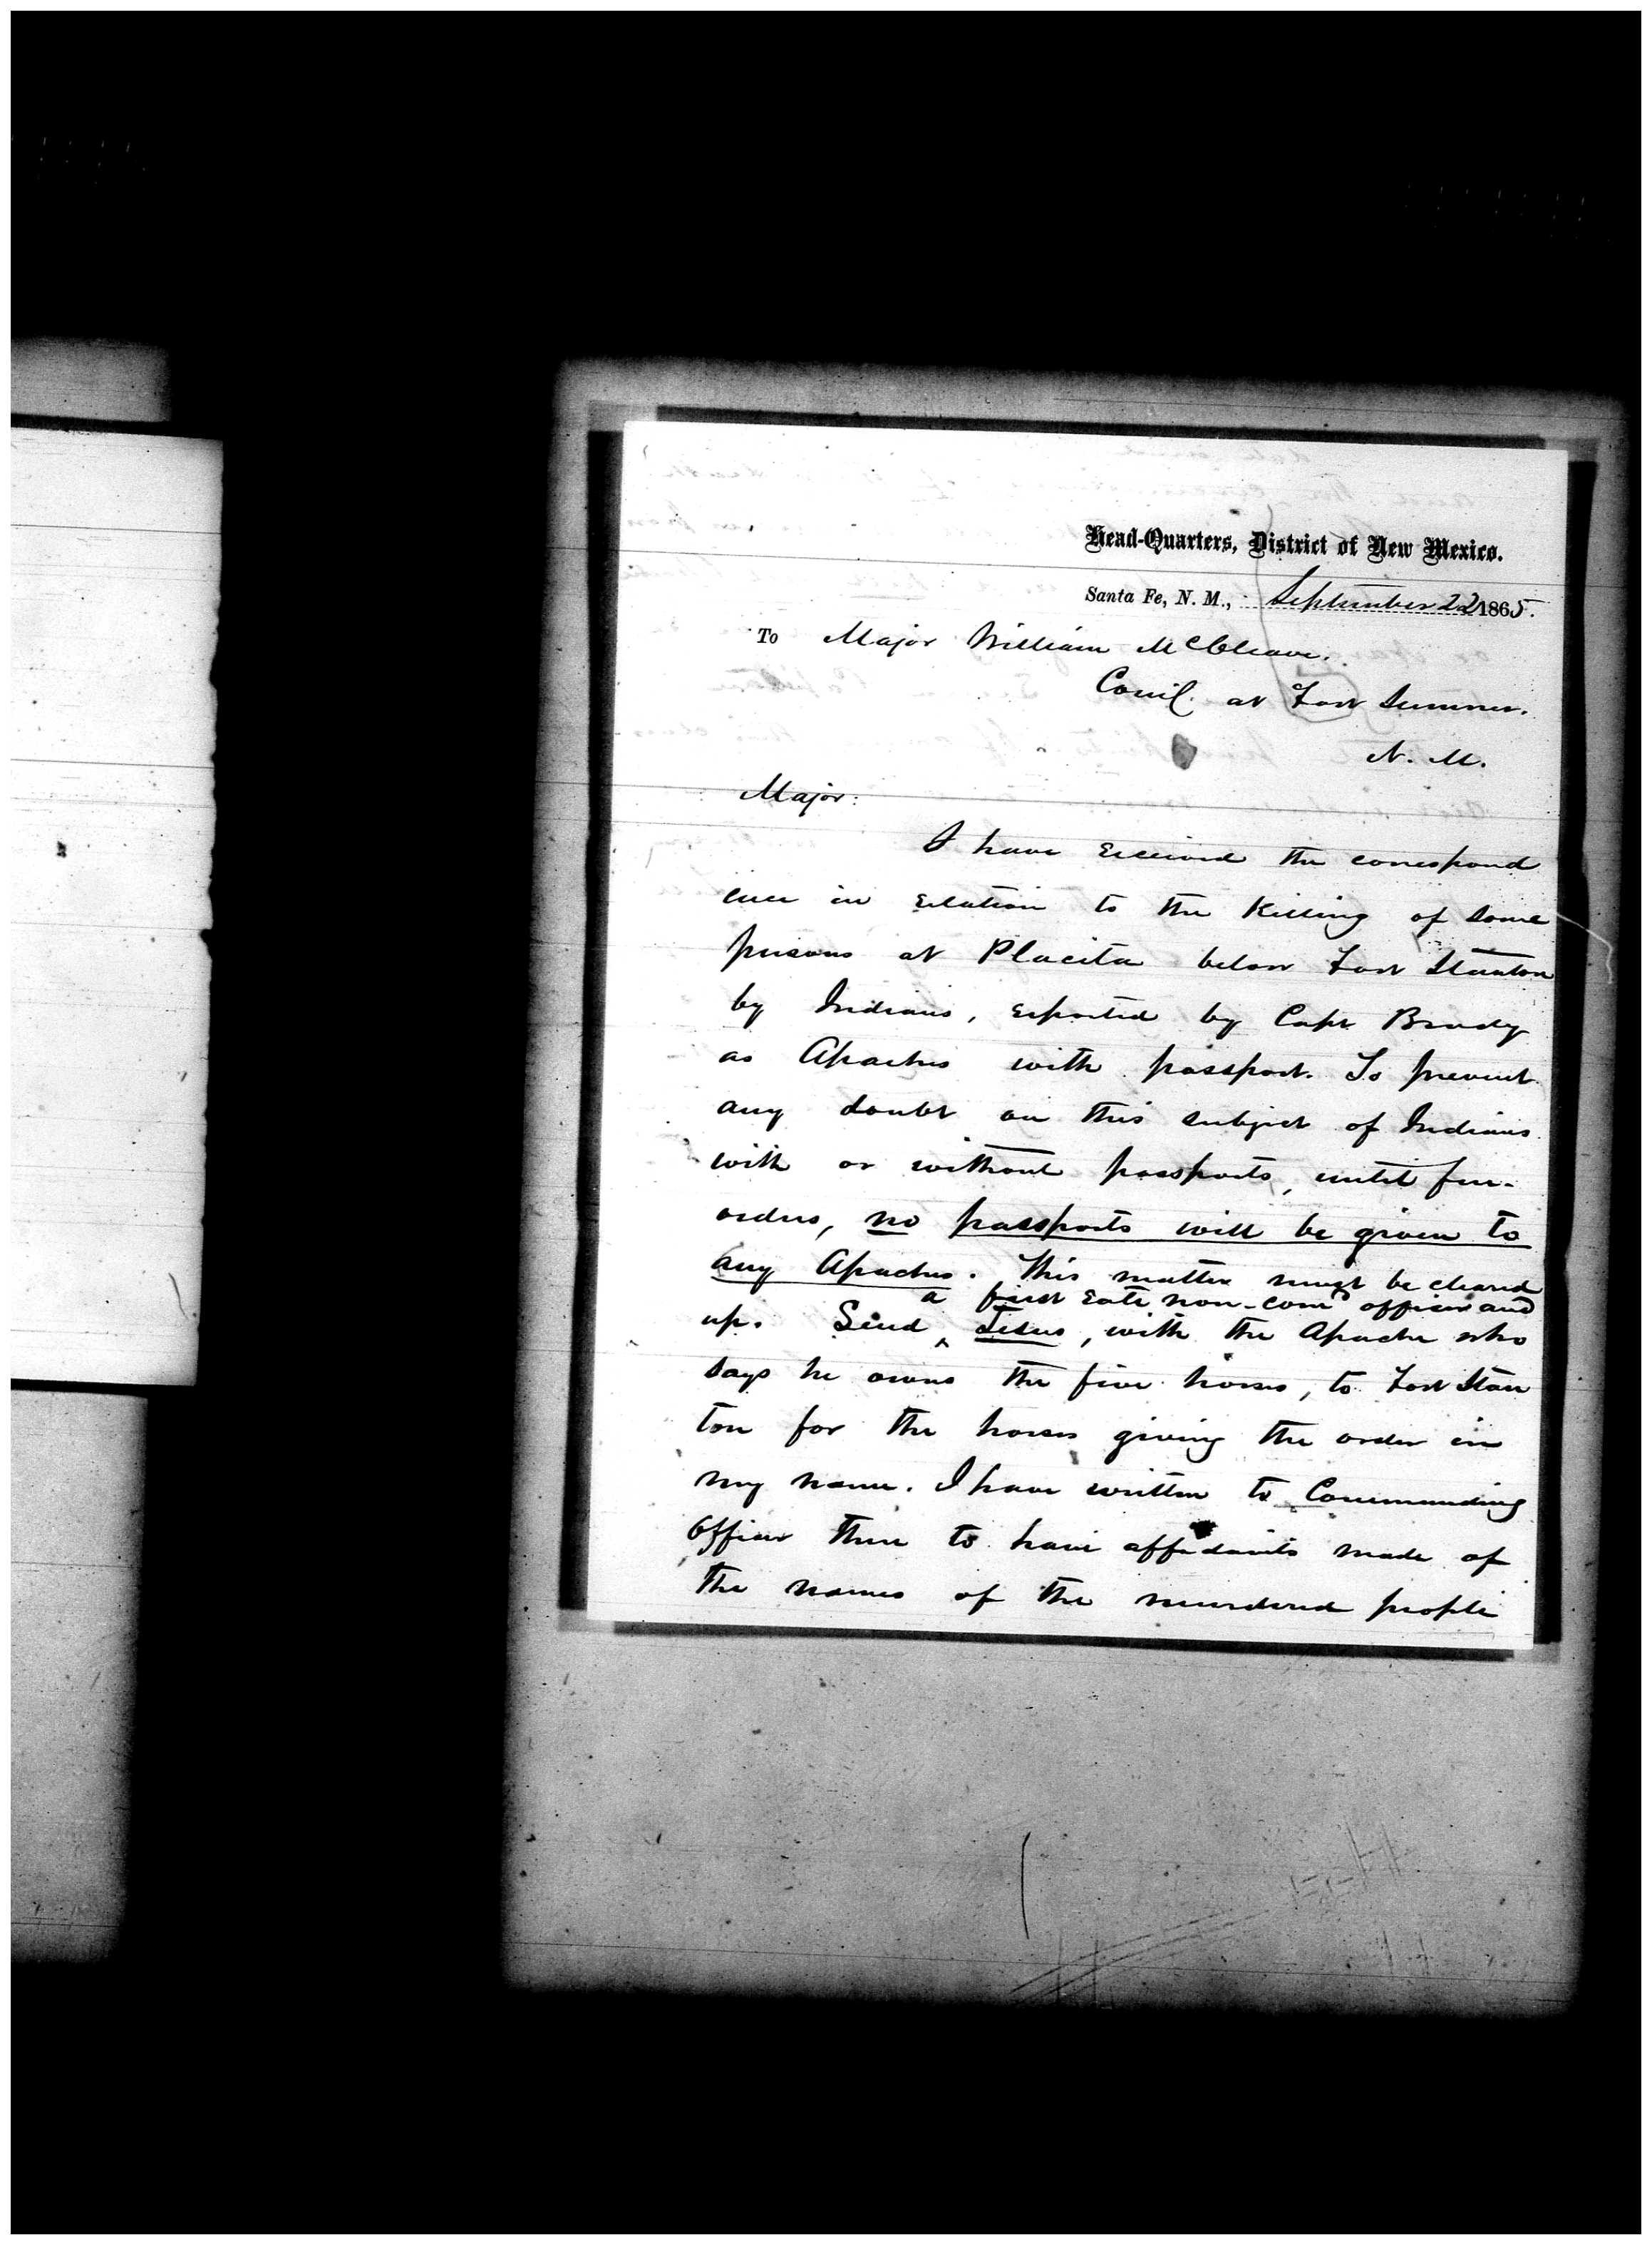 Head-Quarters, District of New Mexico.
Santa Fe, N. M., September 22 1865.
To Major William McCleave.
Com'd. at Fort Sumner.
N. M.
Major:
I have received the correspond
ence in relation to the Killing of some
persons at Placita below Fort Stanton
by Indians, reported by Capt Brady
as Apaches with passport. To prevent
any doubt on this subject of Indians
with or without passports, until fur-
orders, no passports will be given to
any Apaches. This matter must be cleared
a first rate non-com'd officer and
up. Send ^ Jesus, with the Apache who
says he owns the five horses, to Fort Stan
ton for the horses giving the order in
my name. I have written to Commanding
Officer there to have affidavits made of
the names of the murdered people